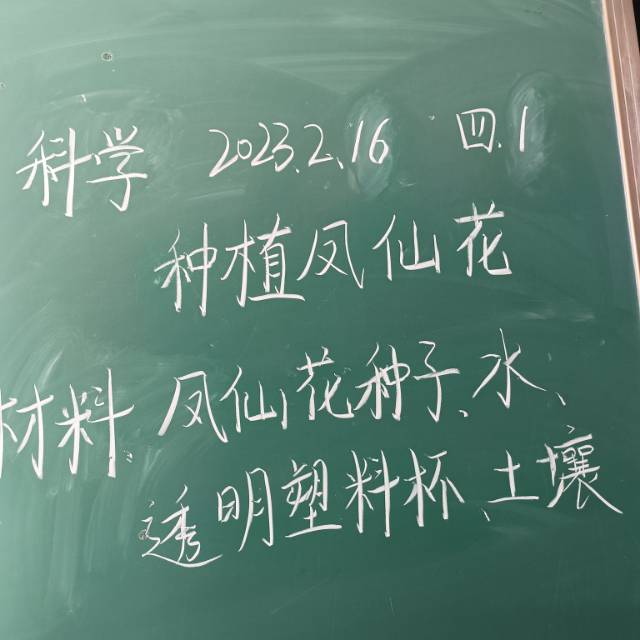 科学 2023.2.16 四.1
种植凤仙花
材料: 凤仙花种子、水、
透明塑料杯、土壤